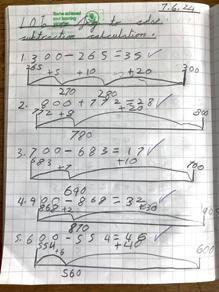 7.6.24
L.O. to solve
subtraction calculation.
1. 300-265=35✓
265 +5 +10 +20 300
270 280
2. 800+772=28✓
772 +8 +20 800
780
3. 700-683=17✓
683 +7 +10 700
690
4. 900-868=32✓
868 +2 +30 900
870
5. 600-554=46✓
554 +6 +40 600
560